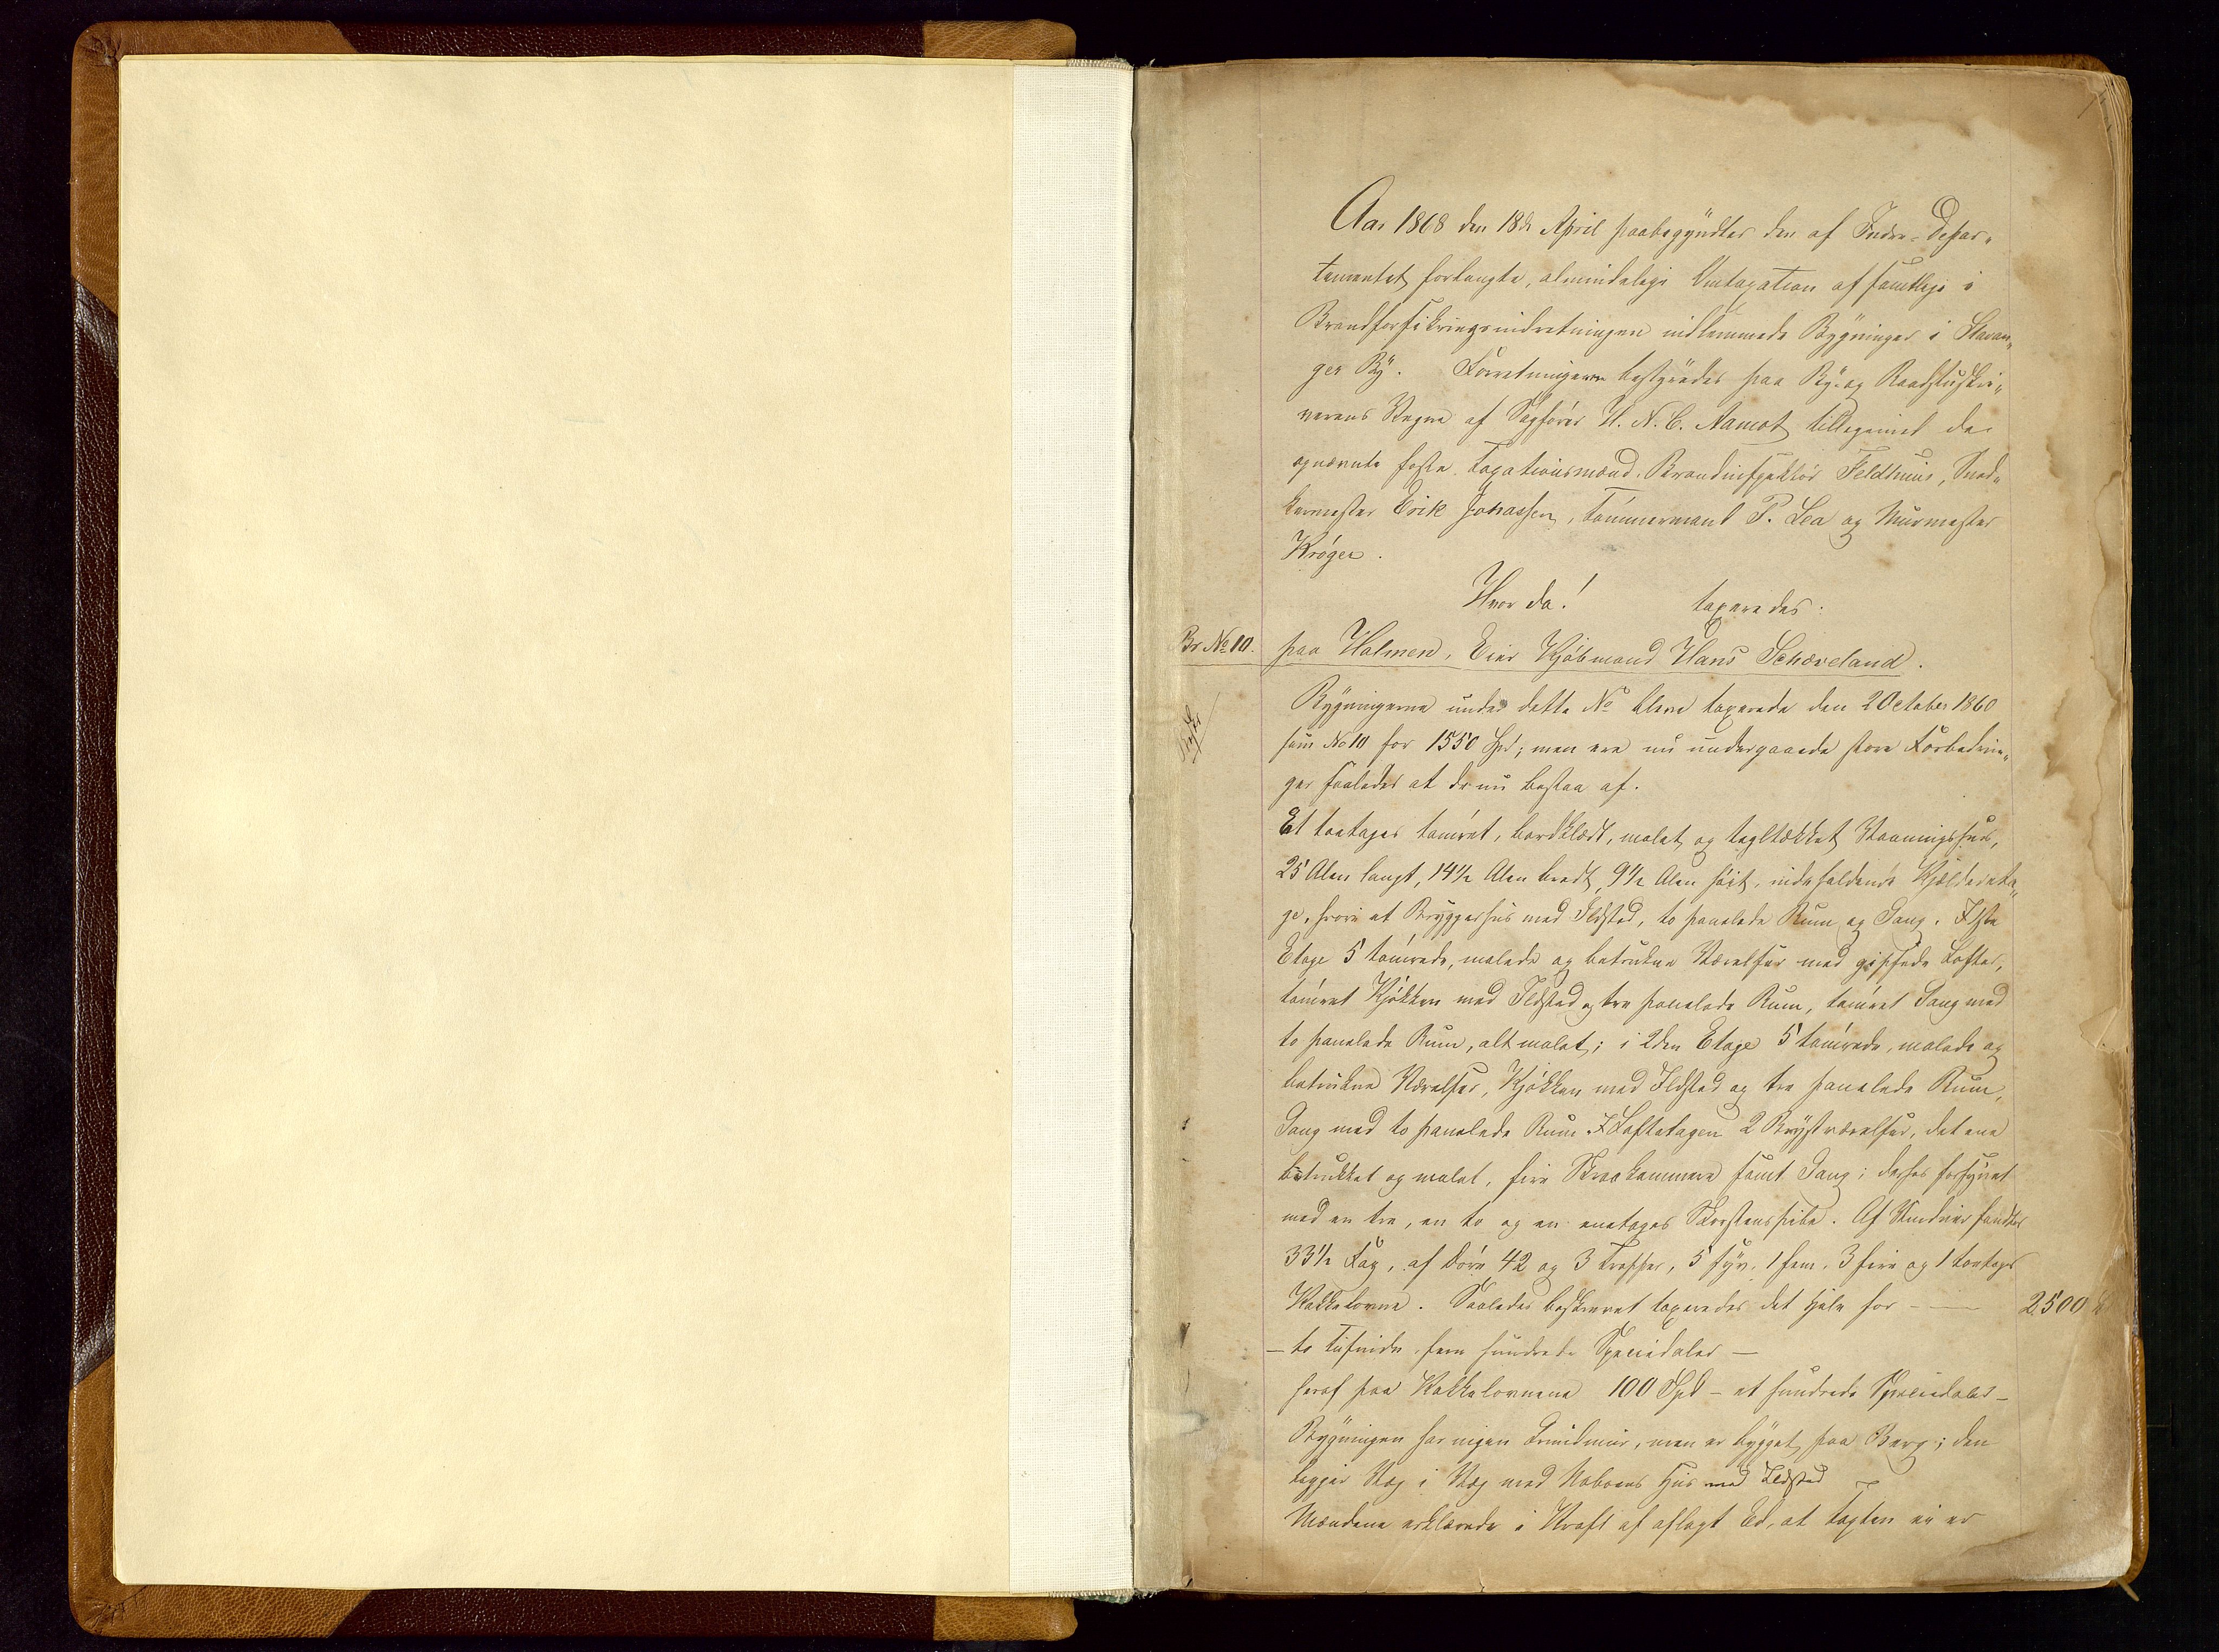 Aar 1868 den 18de April paabegyndtes den af Indre-Depar-
tementet forlangte, almindelige Omtaxation af samtlige i
Brandforsikringsindretningen indlemmede Bygninger i Stavan-
ger By. Forretningerne bestyredes paa By- og Raadstuskri-
verens Vegne af Sagfører H. N. C. Namot tilligemed de
opnævnte faste Taxationsmænd, Brandinspektør Feldtmus, Sned-
kermester Erik Johassen, Tømmermand P. Lea og Murmester
Krøger.
Hvor da! taxeredes:
Br No 10. paa Holmen, Eier Kjøbmand Hans Schæveland.
Bygningerne under dette No bleve taxerede den 2 October 1860
som No 10 for 1550 Spd; men ere nu undergaaede store Forbedrin-
ger saaledes at de nu bestaa af.
Et toetages tømret, bordklædt, malet og tegltækket Vaaningshus,
25 Alen langt, 14½ Alen bredt, 9½ Alen høit, indeholdende Kjældereta-
ge, hvori et Bryggerhus med Ildsted, to panelede Rum og Gang. I 1ste
Etage 5 tømrede, malede og betrukne Værelser med gipsede Lofter,
tømret Kjøkken med Ildsted og tre panelede Rum, tømret Gang med
to panelede Rum, alt malet; i 2den Etage 5 tømrede, malede og
betrukne Værelser, Kjøkken med Ildsted og tre panelede Rum,
Gang med to panelede Rum. I Loftetagen 2 Qvistværelser, det ene
betrukket og malet, fire Skraakammere samt Gang; derhos forsynet
med en tre, en to og en enetages Skorstenspibe. Af Vinduer fandtes
33½ Fag, af Døre 42 og 3 Trapper, 5 syv, 1 fem, 3 fire og 1 toetages
Kakkelovne. Saaledes beskrevet taxeredes det Hele for - — 2500
— to tusinde, fem hundrede Speciedaler —
heraf paa Kakkelovnene 100 Spd - et hundrede Speciedaler -
Bygningen har ingen Grundmur, men er bygget paa Berg; den
ligger Væg i Væg med Naboens Hus med Ildsted
Mændene erklærede i Kraft af aflagt Ed, at Taxten ei er